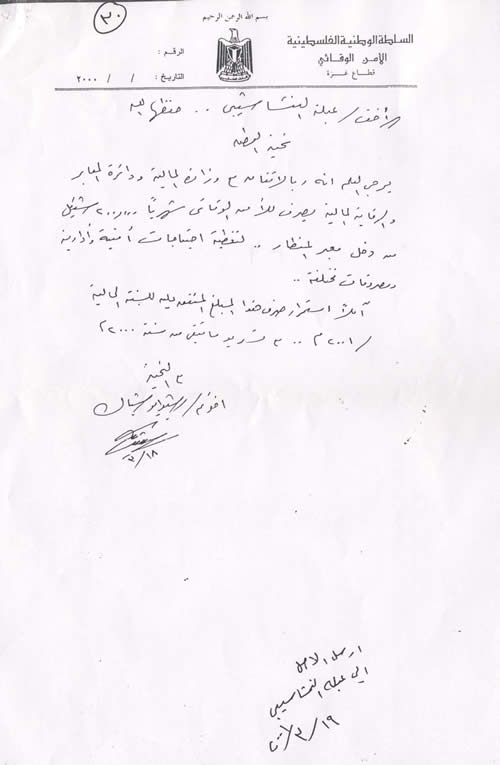 ٣٠
بسم الله الرحمن الرحيم
السلطة الوطنية الفلسطينية
الأمن الوقائي
قطاع غزة
الرقم :
التاريخ : / / ٢٠٠٠
الأخت / عبلة النشاشيبي .. حفظها الله
تحية الوطن
يرجى العلم انه وبالاتفاق مع وزارة المالية ودائرة المعابر
والرقابة المالية يصرف للأمن الوقائي شهرياً شيكل
من دخل معبر المنطار .. لتغطية احتياجات أمنية وأدارية
ومصروفات مختلفة ..
آملاً استمرار صرف هذا المبلغ المتفق عليه للسنة المالية
٢٠٠١م .. مع تسديد ما تبقى من سنة ٢٠٠٠
مع التحية
اخوكم / رشيد ابو شباك
١٨/٣
ارسل الاصل
الى عبلة النشاشيبي
١٩/٣